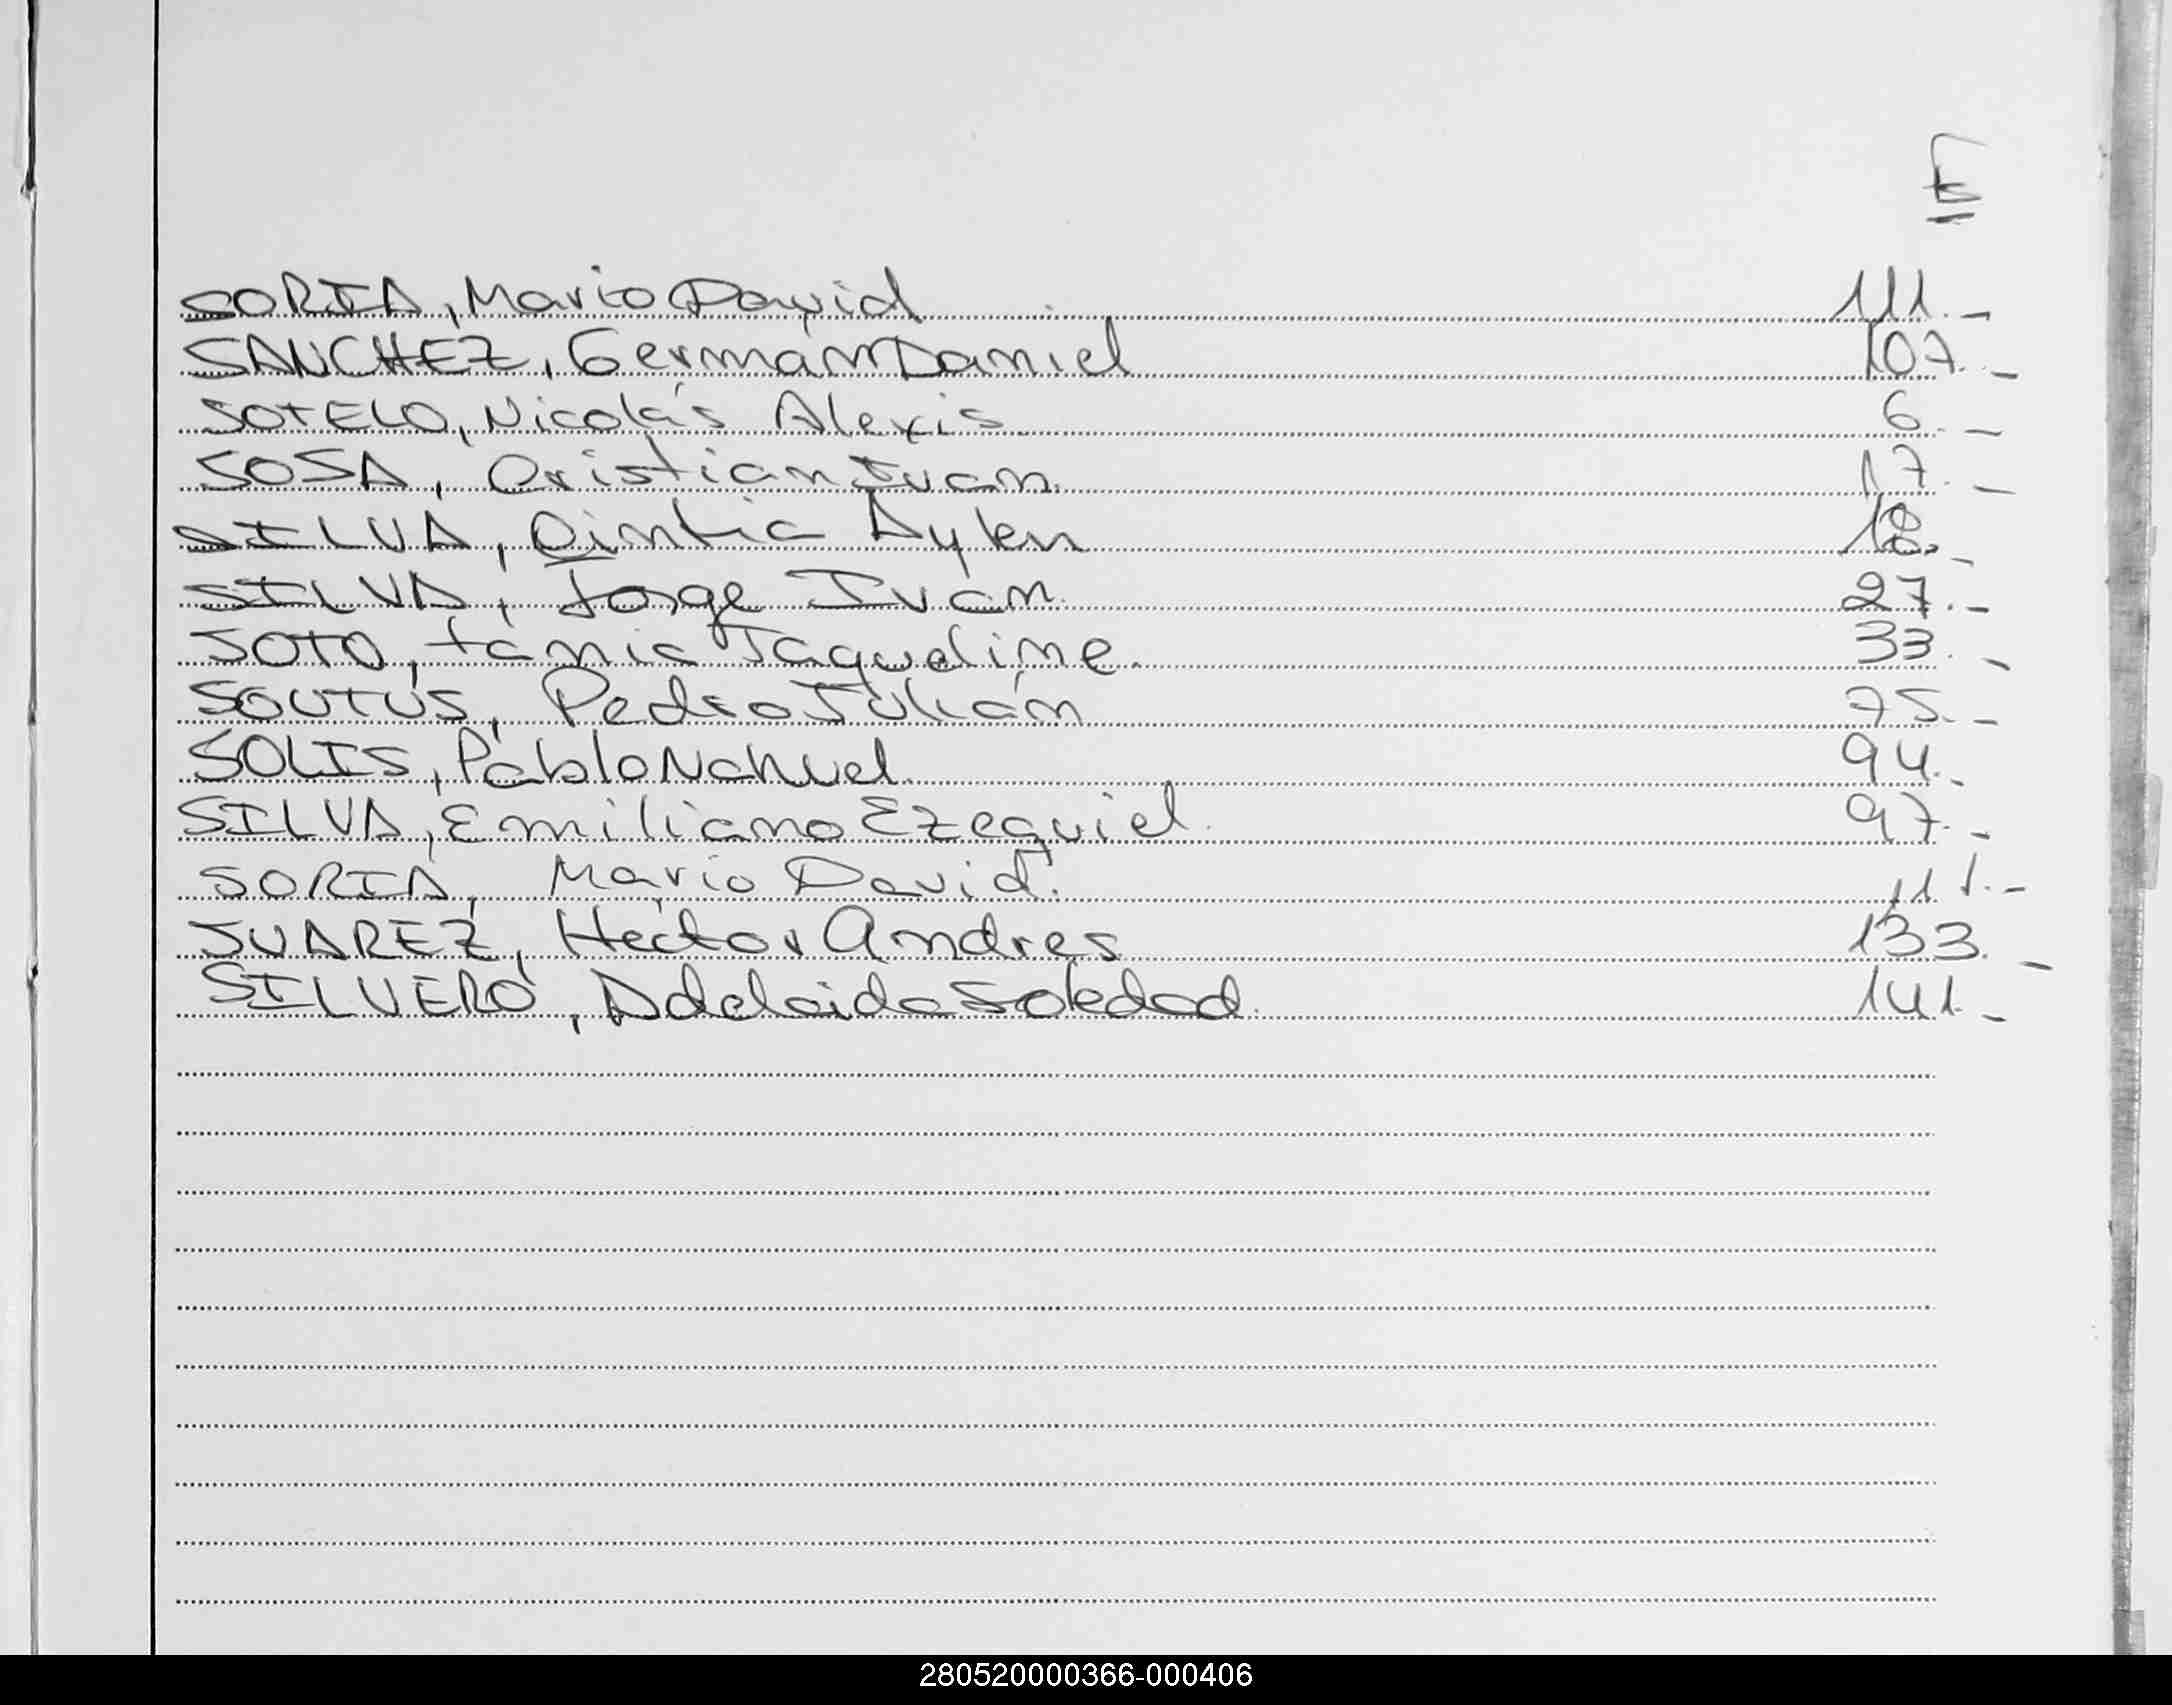 F
SORIA, Mario David 111.-
SANCHEZ, Germán Daniel 107.-
SOTELO, Nicolás Alexis 6.-
SOSA, Cristian Ivan 17.-
SILVA, Cintia Aylen 18.-
SILVA, Jorge Ivan 27.-
SOTO, tania Jaqueline. 33.-
SOUTUS, Pedro Julián 75.-
SOLIS, Pablo Nahuel 94.-
SILVA, Emiliano Ezequiel. 97.-
SORIA, Mario David. 111.-
SUAREZ, Hector Andres 133.-
SILVERO, Adelaida Soledad. 141.-
280520000366-000406